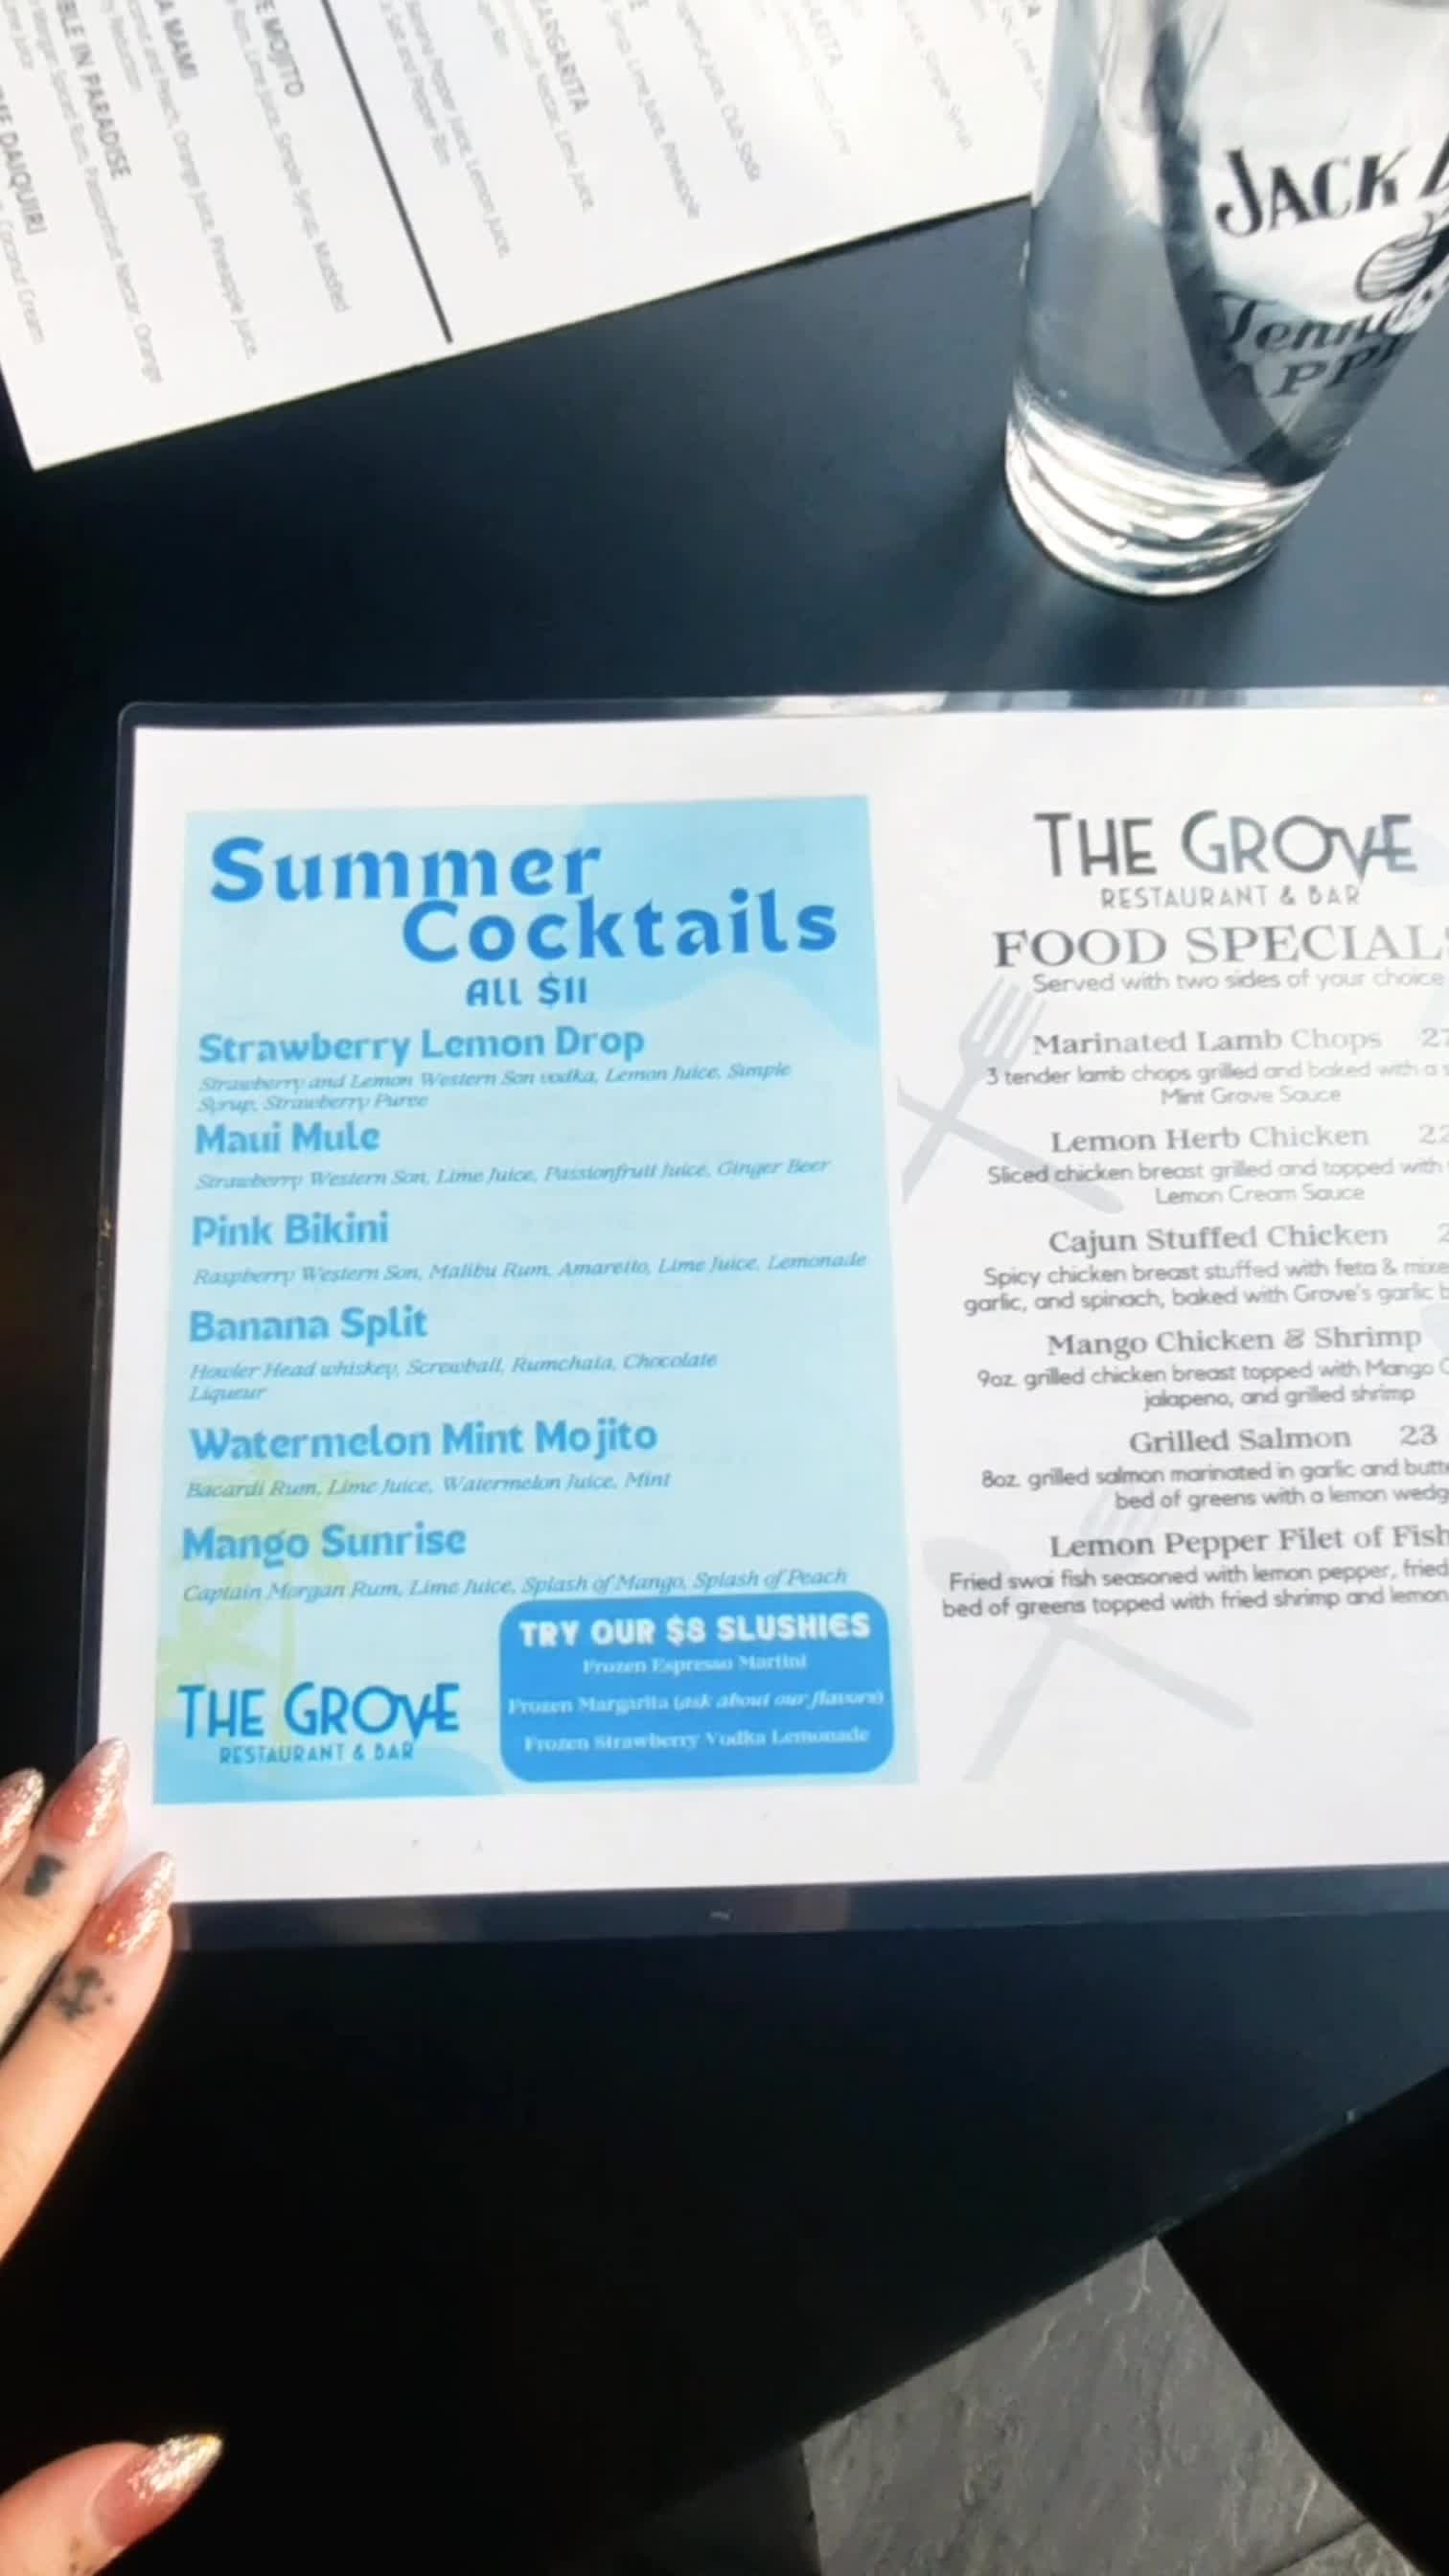 MOJITO
Rum, Lime Juice, Simple Syrup, Muddled
MAMI
Orange Juice, Pineapple Juice,
IN PARADISE
Spiced Rum, Passionfruit Nectar, Orange
DAIQUIRI
Coconut Cream
Banana Pepper Juice, Lemon Juice,
Salt and Pepper Rim
Nectar, Lime Juice,
Lime Juice, Pineapple
Juice, Club Soda
JACK
APP
Summer
Cocktails
ALL $11
Strawberry Lemon Drop
Strawberry and Lemon Western Son vodka, Lemon Juice, Simple
Syrup, Strawberry Puree
Maui Mule
Strawberry Western Son, Lime Juice, Passionfruit Juice, Ginger Beer
Pink Bikini
Raspberry Western Son, Malibu Rum, Amaretto, Lime Juice, Lemonade
Banana Split
Howler Head whiskey, Screwball, Rumchata, Chocolate
Liqueur
Watermelon Mint Mojito
Bacardi Rum, Lime Juice, Watermelon Juice, Mint
Mango Sunrise
Captain Morgan Rum, Lime Juice, Splash of Mango, Splash of Peach
TRY OUR $8 SLUSHIES
Frozen Espresso Martini
Frozen Margarita (ask about our flavors)
Frozen Strawberry Vodka Lemonade
THE GROVE
RESTAURANT & BAR
THE GROVE
RESTAURANT & BAR
FOOD SPECIAL
Served with two sides of your choice
Marinated Lamb Chops
3 tender lamb chops grilled and baked with a
Mint Grove Sauce
Lemon Herb Chicken
Sliced chicken breast grilled and topped with
Lemon Cream Sauce
Cajun Stuffed Chicken
Spicy chicken breast stuffed with feta & mixe
garlic, and spinach, baked with Grove's garlic
Mango Chicken & Shrimp
9oz. grilled chicken breast topped with Mango
jalapeno, and grilled shrimp
Grilled Salmon 23
8oz. grilled salmon marinated in garlic and butte
bed of greens with a lemon wedg
Lemon Pepper Filet of Fish
Fried swai fish seasoned with lemon pepper, fried
bed of greens topped with fried shrimp and lemon